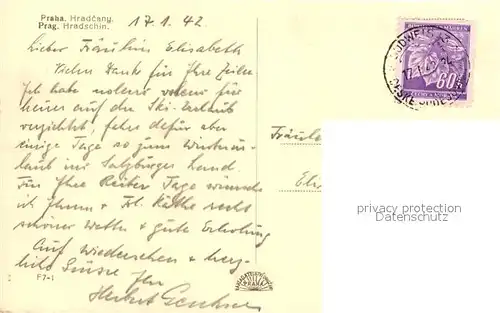 Praha. Hradčany.
Prag. Hradschin.
17.1.42.
Lieber Fräulein Elisabeth
Vielen Dank für Ihre Zeilen
Ich habe nolens volens für
heuer auf den Ski-Urlaub
verzichtet, fahre dafür aber
einige Tage so zum
laub ins Salzburger Land.
Für Ihre Tage wünsche
ich Ihnen + Frl. Käthe recht
schönes Wetter + gute Erholung
Auf Wiedersehen + herz-
liche Grüsse Ihr
Herbert
F7-1
PRAHA
BUDWEIS
17.1.42
60
Fräulei
privacy protection
Datenschutz